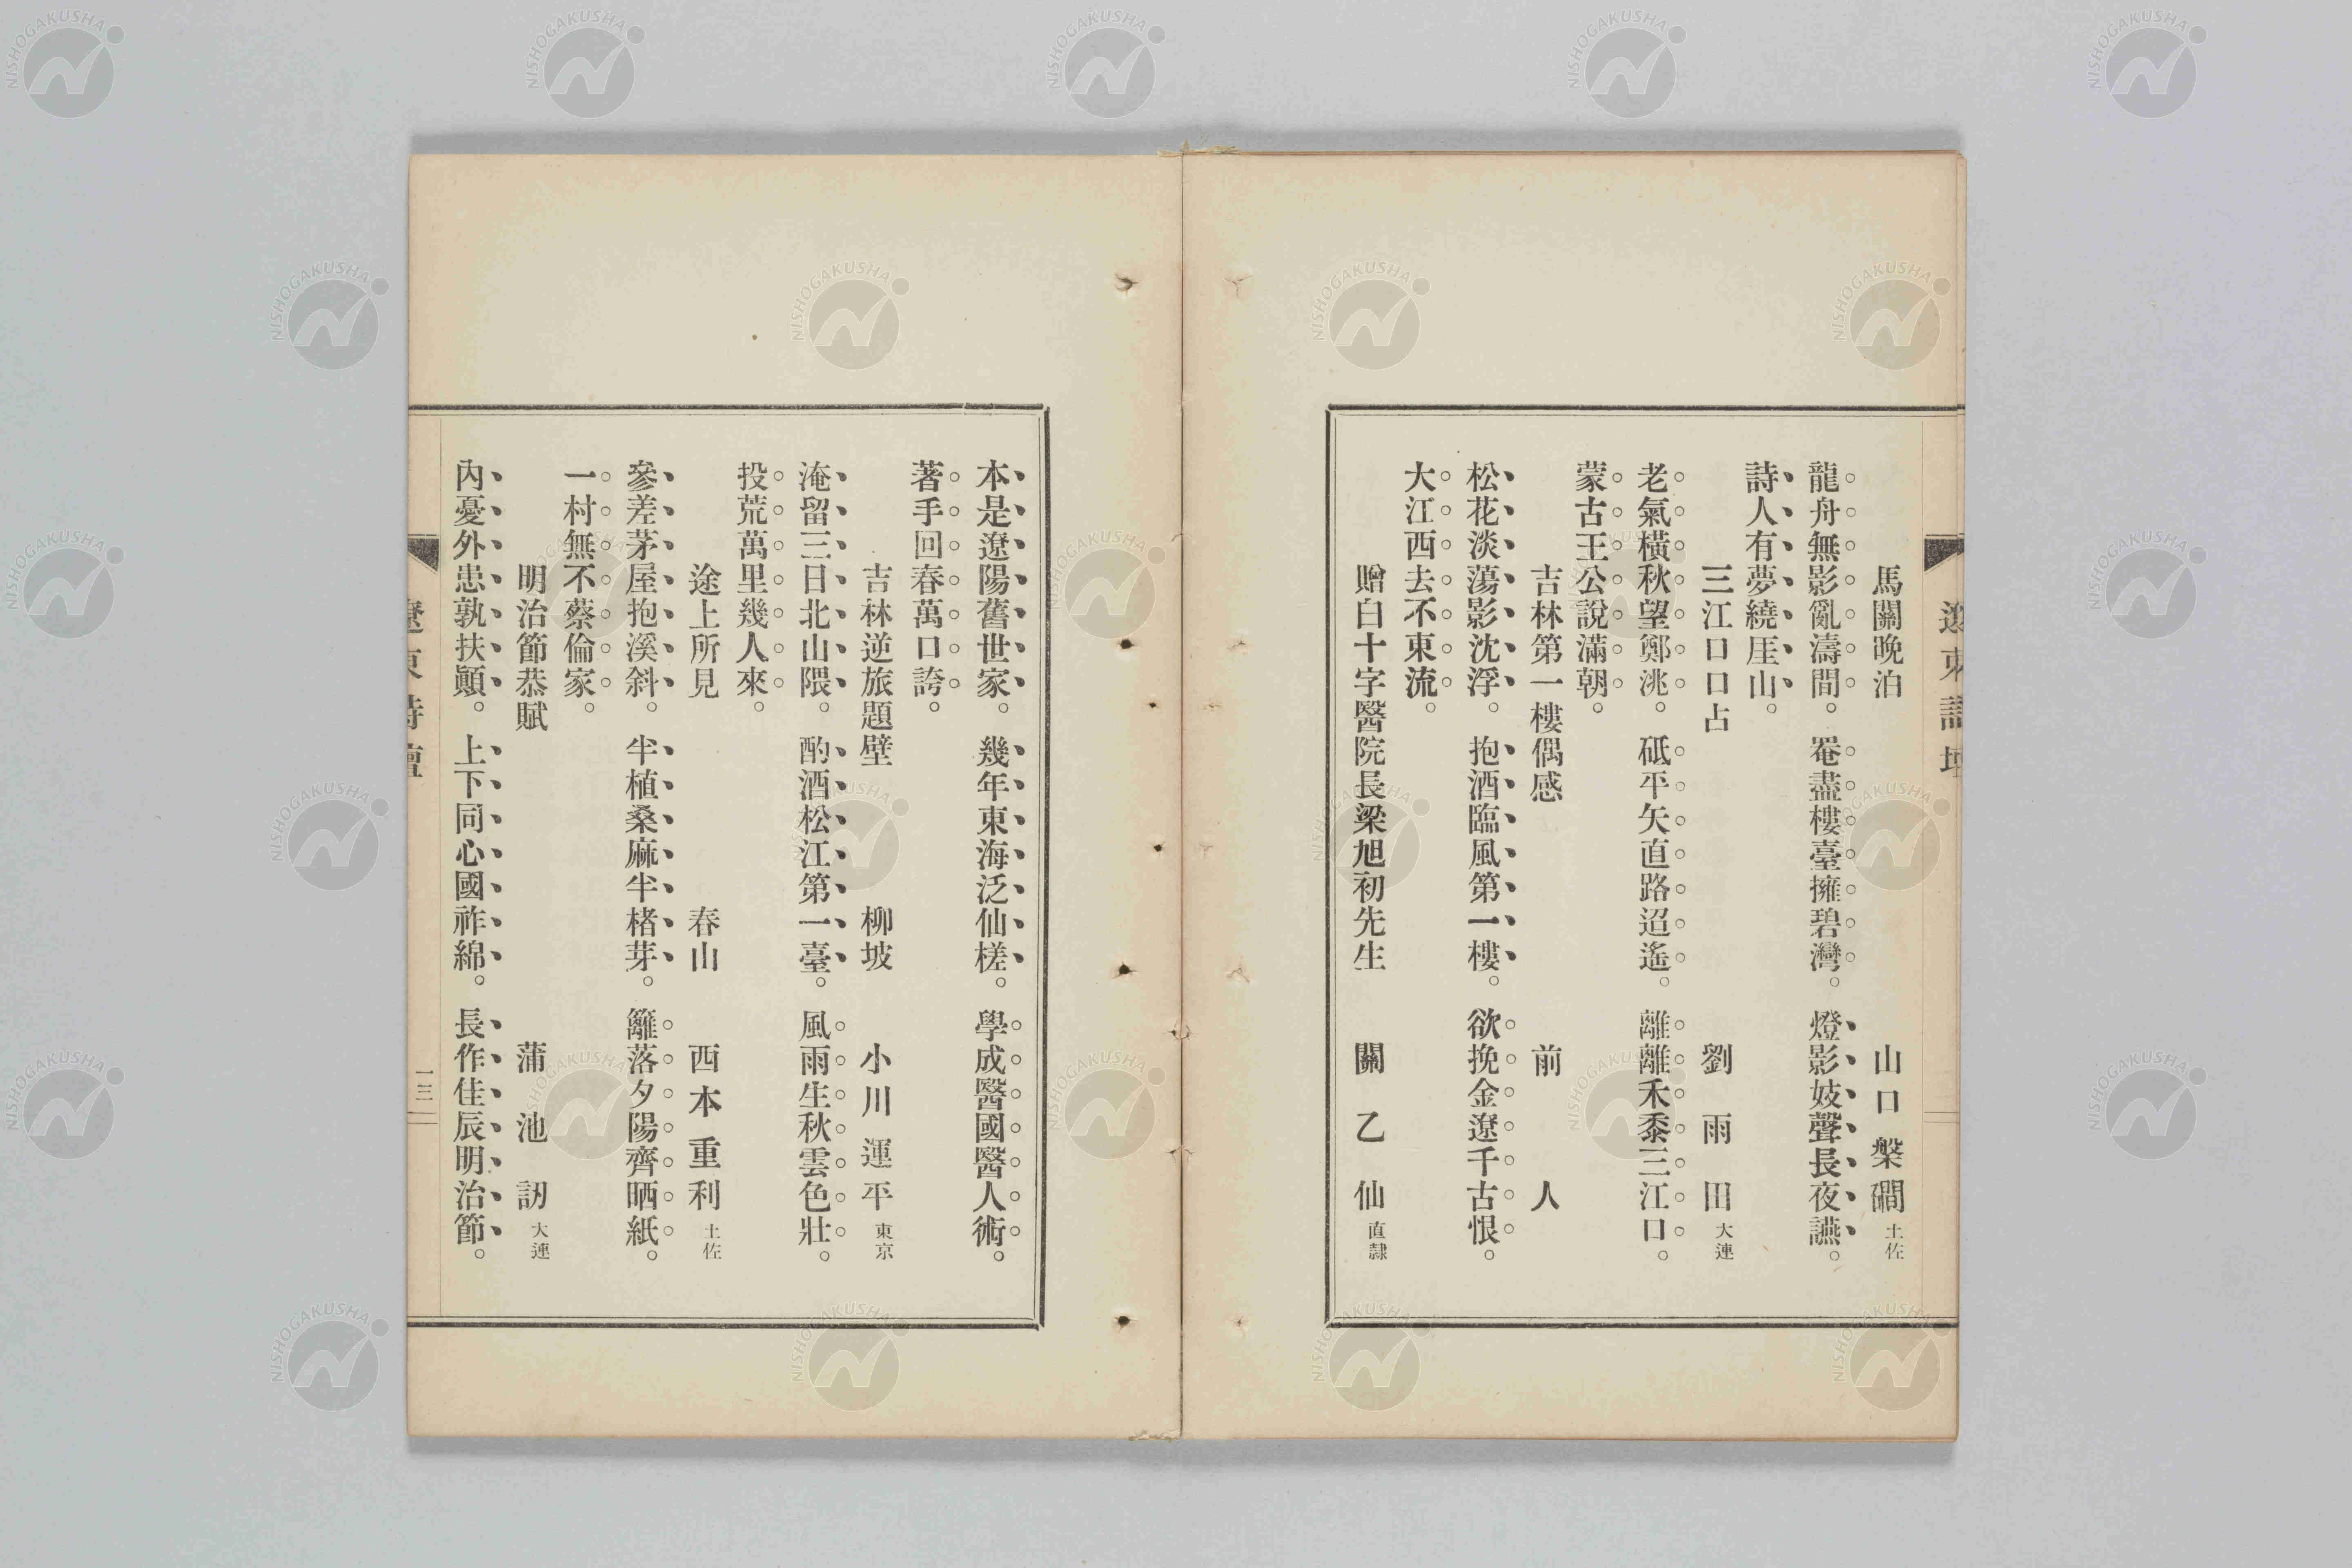 遼東詩壇
馬關晚泊　山口槃磵 土佐
龍舟無影亂濤間。罨盡樓臺擁碧灣。燈影妓聲長夜讌。
詩人有夢繞厓山。
三江口口占　劉雨田 大連
老氣橫秋望鄭洮。砥平矢直路迢遙。離離禾黍三江口。
蒙古王公說滿朝。
吉林第一樓偶感　前人
松花淡蕩影沈浮。抱酒臨風第一樓。欲挽金遼千古恨。
大江西去不東流。
贈白十字醫院長梁旭初先生　關乙仙 直隸
本是遼陽舊世家。幾年東海泛仙槎。學成醫國醫人術。
著手回春萬口誇。
吉林逆旅題壁　柳坡　小川運平 東京
淹留三日北山隈。酌酒松江第一臺。風雨生秋雲色壯。
投荒萬里幾人來。
途上所見　春山　西本重利 土佐
參差茅屋抱溪斜。半植桑麻半楮芽。籬落夕陽齊晒紙。
一村無不蔡倫家。
明治節恭賦　蒲池訒 大連
內憂外患孰扶顚。上下同心國祚綿。長作佳辰明治節。
遼東詩壇
一三
NISHOGAKUSHA